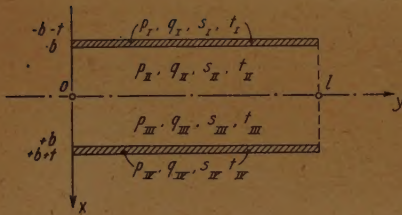 -b-t
p_I, q_I, s_I, t_I
-b
p_II, q_II, s_II, t_II
o
l
y
p_III, q_III, s_III, t_III
+b
+b+t
p_IV, q_IV, s_IV, t_IV
x